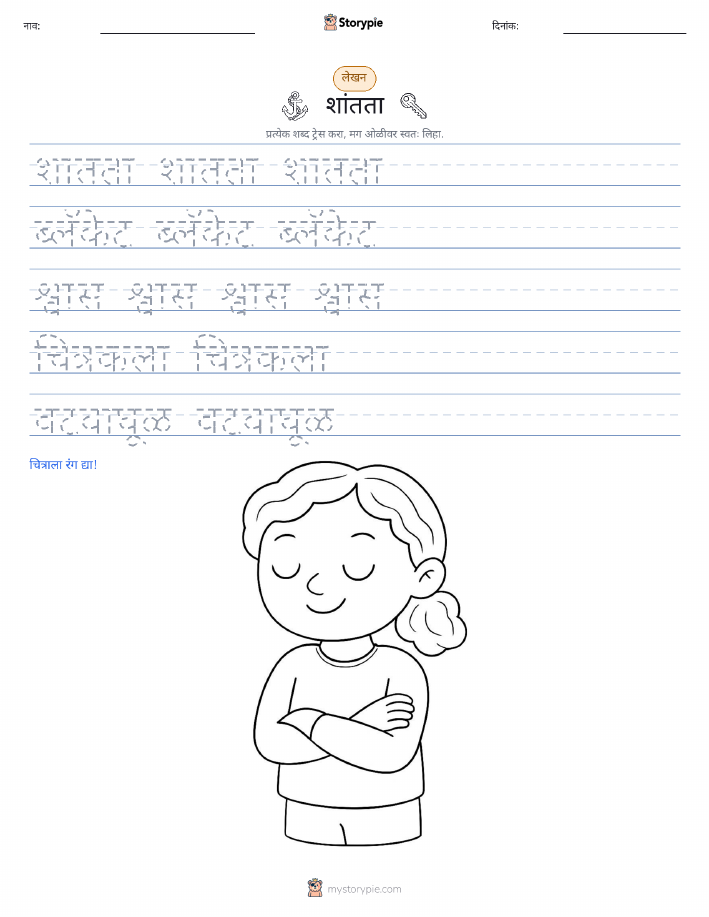 नाव:
Storypie
दिनांक:
लेखन
शांतता
प्रत्येक शब्द ट्रेस करा, मग ओळीवर स्वतः लिहा.
शांतता शांतता शांतता
ब्लॅंकेट ब्लॅंकेट ब्लॅंकेट
श्वास श्वास श्वास श्वास
चित्रकला चित्रकला
चित्राला रंग द्या!
mystorypie.com